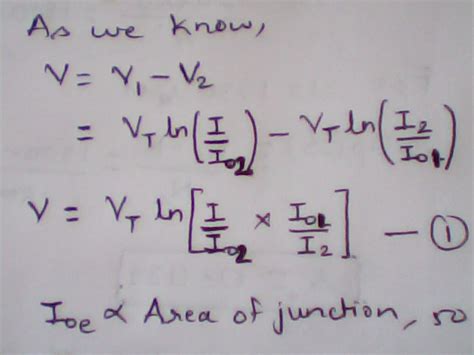 As we know,
V = V₁ - V₂
= V_T ln(I/I₀₂) - V_T ln(I₂/I₀₁)
V = V_T ln[I/I₀₂ × I₀₁/I₂] — ①
I₀e ∝ Area of junction, so